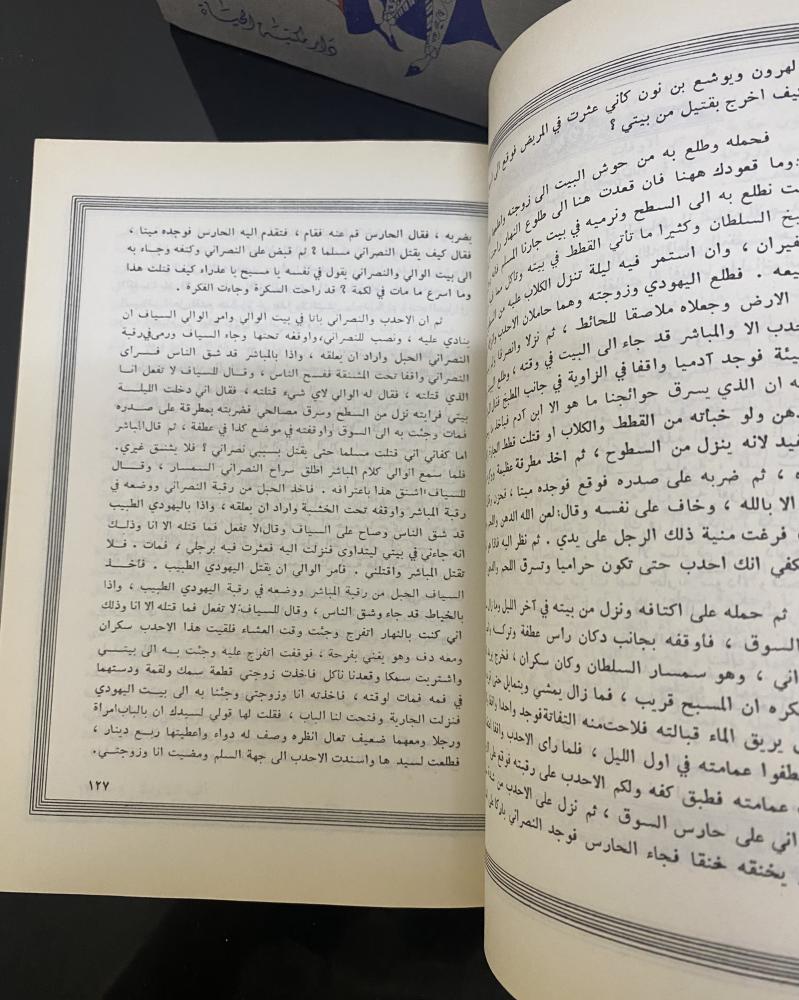 دار مكتبة الحياة
لهرون ويوشع بن نون كاني عثرت في المريض فوقع الى
كيف اخرج بقتيل من بيتي ؟
فحمله وطلع به من حوش البيت الى زوجته
وما قعودك ههنا فان قعدت هنا الى طلوع النهار
نطلع به الى السطح ونرميه في بيت جارنا المسلم
السلطان وكثيرا ما تأتي القطط في بيته وتأكل مما
، وان استمر فيه ليلة تنزل الكلاب عليه من
. فطلع اليهودي وزوجته وهما حاملان الاحدب
الارض وجعلاه ملاصقا للحائط ، ثم نزلا وانصرفا
الا والمباشر قد جاء الى البيت في وقته ، وطلع
فوجد آدميا واقفا في الزاوية في جانب المطبخ فقال
ان الذي يسرق حوائجنا ما هو الا ابن آدم
ولو خبأته من القطط والكلاب او قتلت قطط
لانه ينزل من السطوح ، ثم اخذ مطرقة عظيمة
، ثم ضربه على صدره فوقع فوجده ميتا ، فحزن
الا بالله ، وخاف على نفسه وقال: لعن الله الدهن
فرغت منية ذلك الرجل على يدي . ثم نظر اليه فاذا هو
كفي انك احدب حتى تكون حراميا وتسرق اللحم
ثم حمله على اكتافه ونزل من بيته في آخر الليل وما زال
السوق ، فاوقفه بجانب دكان راس عطفة وتركه
، وهو سمسار السلطان وكان سكران ، فخرج
سكره ان المسبح قريب ، فما زال يمشي ويتمايل حتى
يريق الماء قبالته فلاحت منه التفاتة فوجد واحدا واقفا
خطفوا عمامته في اول الليل ، فلما راى الاحدب واقفا
عمامته فطبق كفه ولكم الاحدب على رقبته فوقع على
على حارس السوق ، ثم نزل على الاحدب من
يخنقه خنقا فجاء الحارس فوجد النصراني باركا على
يضربه ، فقال الحارس قم عنه فقام ، فتقدم اليه الحارس فوجده ميتا ،
فقال كيف يقتل النصراني مسلما ؟ ثم قبض على النصراني وكتفه وجاء به
الى بيت الوالي والنصراني يقول في نفسه يا مسيح يا عذراء كيف قتلت هذا
وما اسرع ما مات في لكمة ؟ قد راحت السكرة وجاءت الفكرة .
ثم ان الاحدب والنصراني باتا في بيت الوالي وامر الوالي السياف ان
ينادي عليه ، ونصب للنصراني، واوقفه تحتها وجاء السياف ورمى في رقبة
النصراني الحبل واراد ان يعلقه ، واذا بالمباشر قد شق الناس فراى
النصراني واقفا تحت المشنقة ففسح الناس ، وقال للسياف لا تفعل انا
الذي قتلته ، فقال له الوالي لاي شيء قتلته ، فقال اني دخلت الليلة
بيتي فرايته نزل من السطح وسرق مصالحي فضربته بمطرقة على صدره
فمات وجئت به الى السوق واوقفته في موضع كذا في عطفة ، ثم قال المباشر
اما كفاني اني قتلت مسلما حتى يقتل بسببي نصراني ؟ فلا يشنق غيري.
فلما سمع الوالي كلام المباشر اطلق سراح النصراني السمسار ، وقال
للسياف: اشنق هذا باعترافه . فاخذ الحبل من رقبة النصراني ووضعه في
رقبة المباشر واوقفه تحت الخشبة واراد ان يعلقه ، واذا باليهودي الطبيب
قد شق الناس وصاح على السياف وقال لا تفعل فما قتله الا انا وذلك
انه جاءني في بيتي ليتداوى فنزلت اليه فعثرت فيه برجلي ، فمات . فلا
تقتل المباشر واقتلني . فامر الوالي ان يقتل اليهودي الطبيب . فاخذ
السياف الحبل من رقبة المباشر ووضعه في رقبة اليهودي الطبيب ، واذا
بالخياط قد جاء وشق الناس ، وقال للسياف: لا تفعل فما قتله الا انا وذلك
اني كنت بالنهار اتفرج وجئت وقت العشاء فلقيت هذا الاحدب سكران
ومعه دف وهو يغني بفرحة ، فوقفت اتفرج عليه وجئت به الى بيتي
واشتريت سمكا وقعدنا ناكل فاخذت زوجتي قطعة سمك ولقمة ودستهما
في فمه فمات لوقته ، فاخذته انا وزوجتي وجئنا به الى بيت اليهودي
فنزلت الجارية وفتحت لنا الباب ، فقلت لها قولي لسيدك ان بالباب امراة
ورجلا ومعهما ضعيف تعال انظره وصف له دواء واعطيتها ربع دينار ،
فطلعت لسيد ها واسندت الاحدب الى جهة السلم ومضيت انا وزوجتي.
١٢٧